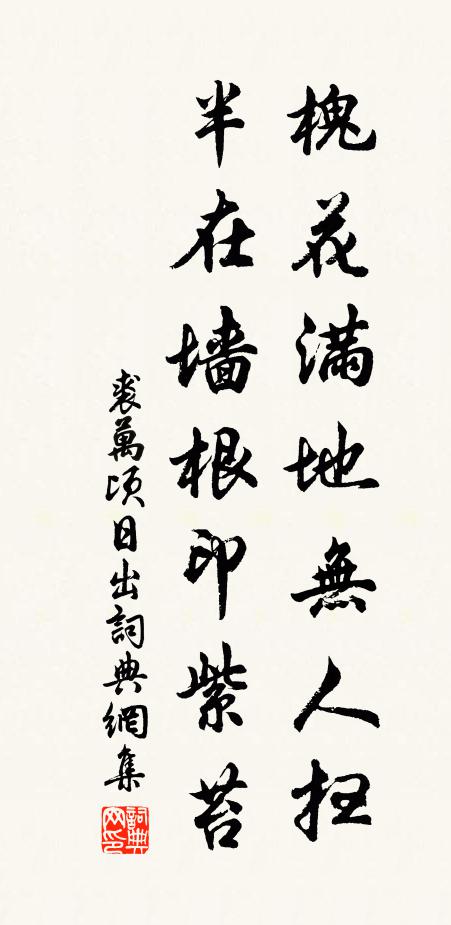 槐花滿地無人扫
半在墙根印紫苔
裘萬頃日出詞典網集
詞典网印